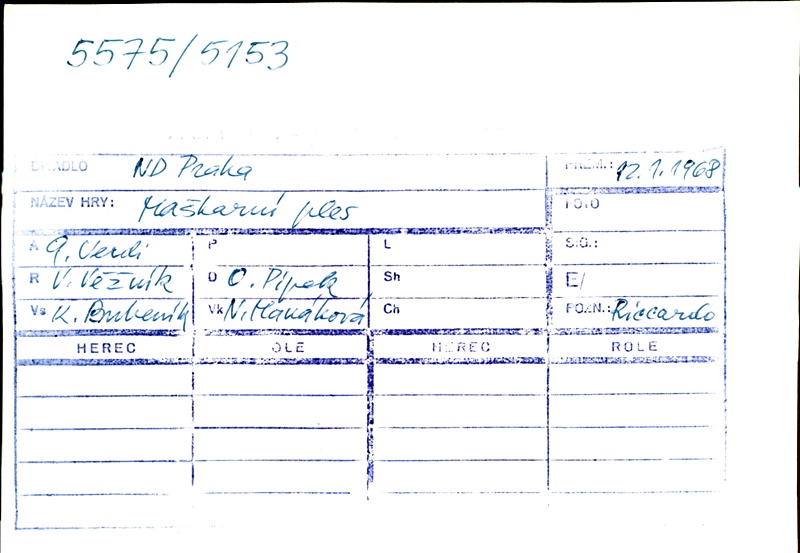 5575/5153
DIVADLO ND Praha PREM.: 12.1.1968
NÁZEV HRY: Maškarní ples FOTO
A G. Verdi P L S.G.:
R V. Věžník D O. Pipek Sh E/
Vs K. Bubeník Vk N. Hanáková Ch POZN.: Riccardo
HEREC ROLE HEREC ROLE